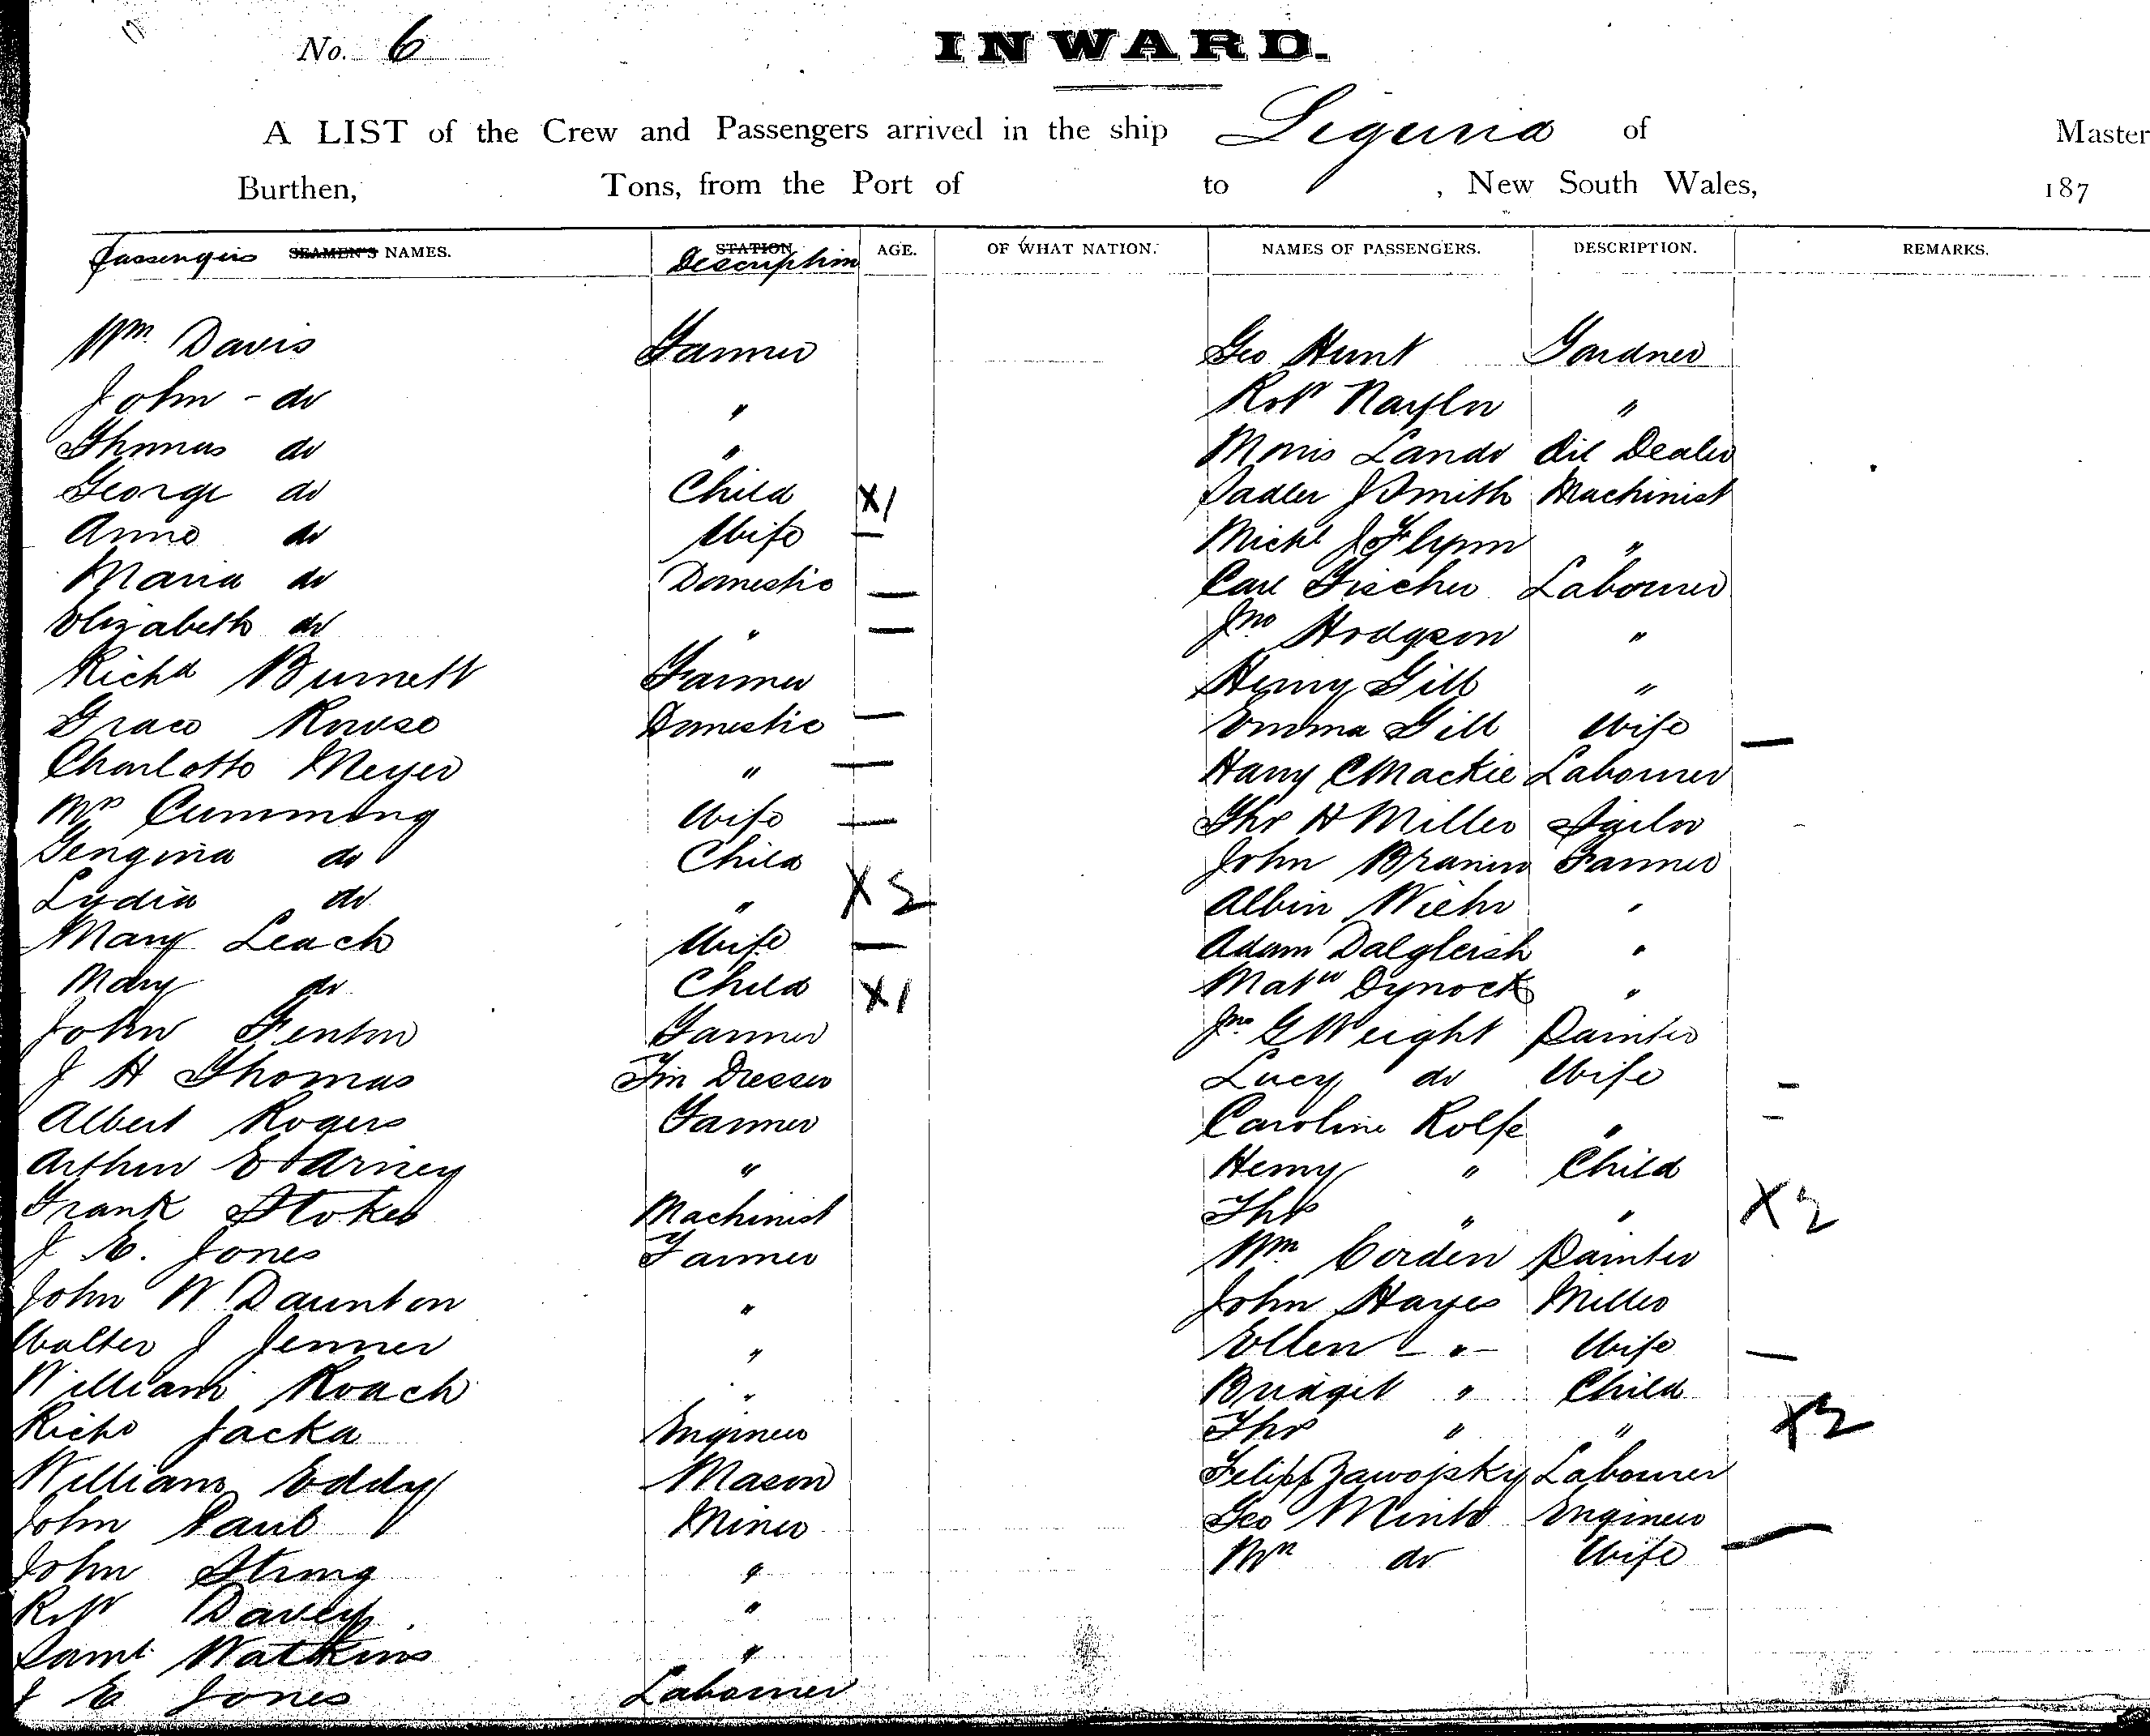 No. 6
INWARD.
A LIST of the Crew and Passengers arrived in the ship Liguria of Master
Burthen, Tons, from the Port of to , New South Wales, 187
Passengers SEAMEN'S NAMES. STATION Description AGE. OF WHAT NATION. NAMES OF PASSENGERS. DESCRIPTION. REMARKS.
Wm. Davis Farmer
John - do "
Thomas do "
George do Child X1
Anne do Wife —
Maria do Domestic —
Elizabeth do " —
Richd Burnett Farmer
Grace Rowse Domestic —
Charlotte Meyer " —
Mrs Cumming Wife —
do Child
Lydia do " X2
Mary Leach Wife —
Mary do Child X1
John Fenton Farmer
J H Thomas Tin Dresser
Albert Rogers Farmer
Arthur E Arney "
Frank Stokes Machinist
J E. Jones Farmer
John W Daunton "
Walter J Jenner "
William Roach "
Richd Jacka Engineer
William Eddy Mason
John Paul Miner
John Strong "
Robt Davey "
Saml Watkins "
J E Jones Labourer
Geo Hunt Gardner
Robt Naylor "
Morris Lando Oil Dealer
Sadler J Smith Machinist
Michl J O'Flynn "
Carl Fischer Labourer
Jno Hodgson "
Henry Gill "
Emma Gill Wife —
Harry C Mackie Labourer
Thos H Miller Sailor
John Farmer
Albin Wiehr "
Adam Dalgleish "
Matw Dynock "
Jno G Weight Painter
Lucy do Wife –
Caroline Rolfe " –
Henry " Child
Thos " " X2
Wm Corden Painter
John Hayes Miller
Ellen – " – Wife —
Bridget " Child
Thos " " X2
Felipp Zawopsky Labourer
Geo Minto Engineer
Mrs do Wife —